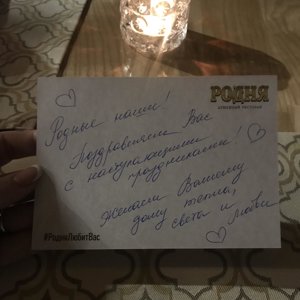 РОДНЯ
Родные наши!
Поздравляем Вас
с наступающими
праздниками!
Желаем Вашему
дому тепла,
света и любви
#РодняЛюбитВас